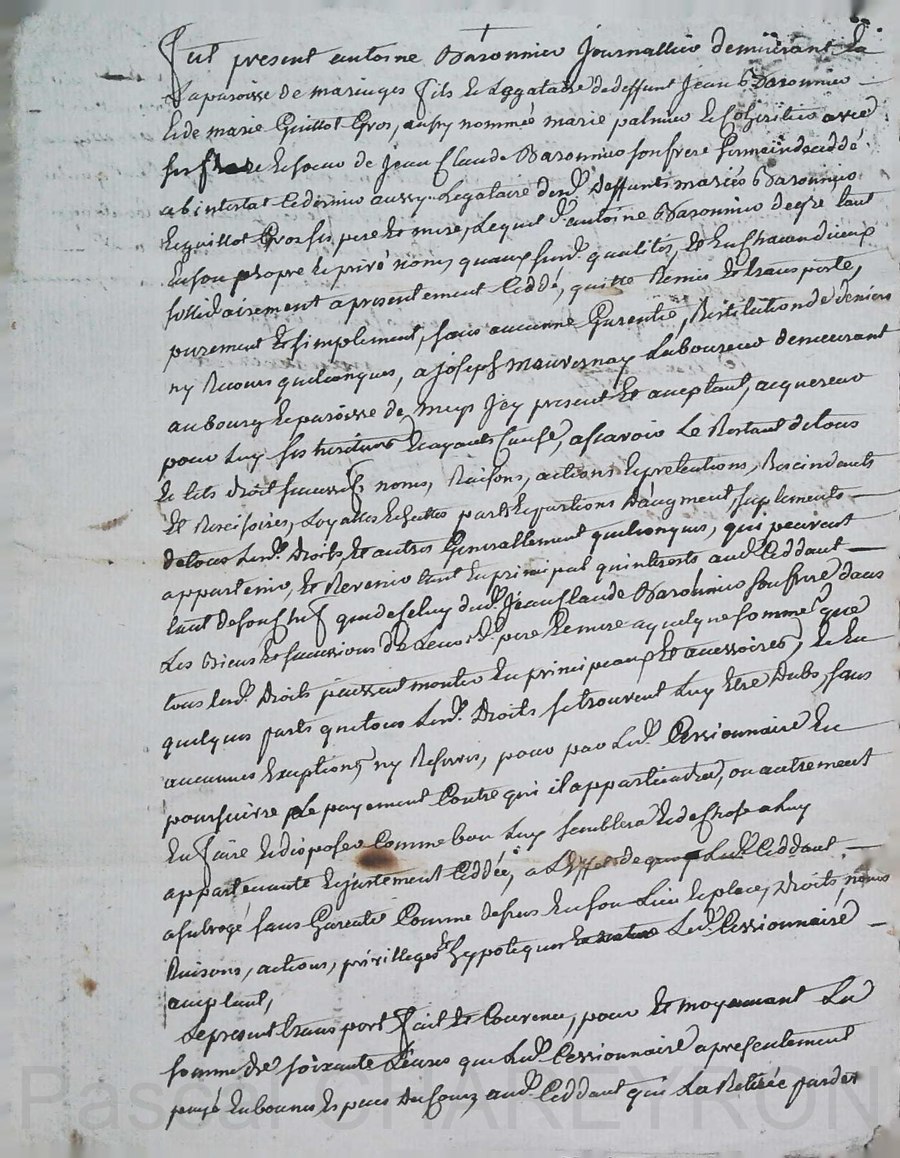 Fut present antoine Baronnier Journallier demeurant en
La paroisse de maringes fils et Legataire de deffunt Jean Baronnier
et de marie Guillot Gros, aussy nommée marie palmier et Coheritier avec
ses frere et soeur de Jean Claude Baronnier son frere germain decedé
abintestat Ce dernier aussy Legataire desd. deffunts mariés Baronnier
et guillot Gros ses pere et mere, Lequel d. antoine Baronnier de gre tant
en son propre et privé nom, quaux surd. qualités, et en chacun d'iceux
sollidairement a presentement Ceddé, quitté Remis et transporté,
purement et simplement, sans aucunne Garentie, Restitution de deniers
ny Recours quelconques, a joseph mauvernay Laboureur demeurant
au bourg et paroisse de meys Icy present et aceptant, acquereur
pour Luy ses heritiers et ayants Cause, ascavoir Le Restant de tous
et tels droit successifs noms, Raisons, actions et pretentions, Rescindants
et Rescisoires, Loyattes et quttes parts et portions d'augment, suplements
de tous Lesd. Droits, et autres Generallement quelconques, qui peuvent
appartenir, et Revenir tant en principal qu'interests aud. Ceddant
tant de son chef que de Celuy dud. Jean Claude Baronnier son frere dans
Les Biens et successions de Leurs d. pere et mere a quelque somme que
tous lesd. Droits puissent monter en principeaux et accessoires, et en
quelques parts que tous Lesd. Droits se trouvent Luy Etre Dubs, sans
aucunnes Exeptions, ny Reserves, pour par Led. Cessionnaire en
poursuivre Le payement Contre qui il appartiendra, ou autrement
En faire et disposer Comme bon Luy semblera et de chose a Luy
appartenante et justement Ceddée, a L'Effet de quoy Led. Ceddant
a subrogé sans Garentie Comme dessus En son Lieu et place, Droits, noms
Raisons, actions, privilleges et hypoteques Led. Cessionnaire
aceptant,
Le present transport fait et Convenu, pour et moyennant La
somme de soixante Livres que Led. Cessionnaire a presentement
payé en bonnes Especes De Cours aud. Ceddant qui La Retirée par det
Pascal CHAREYRON